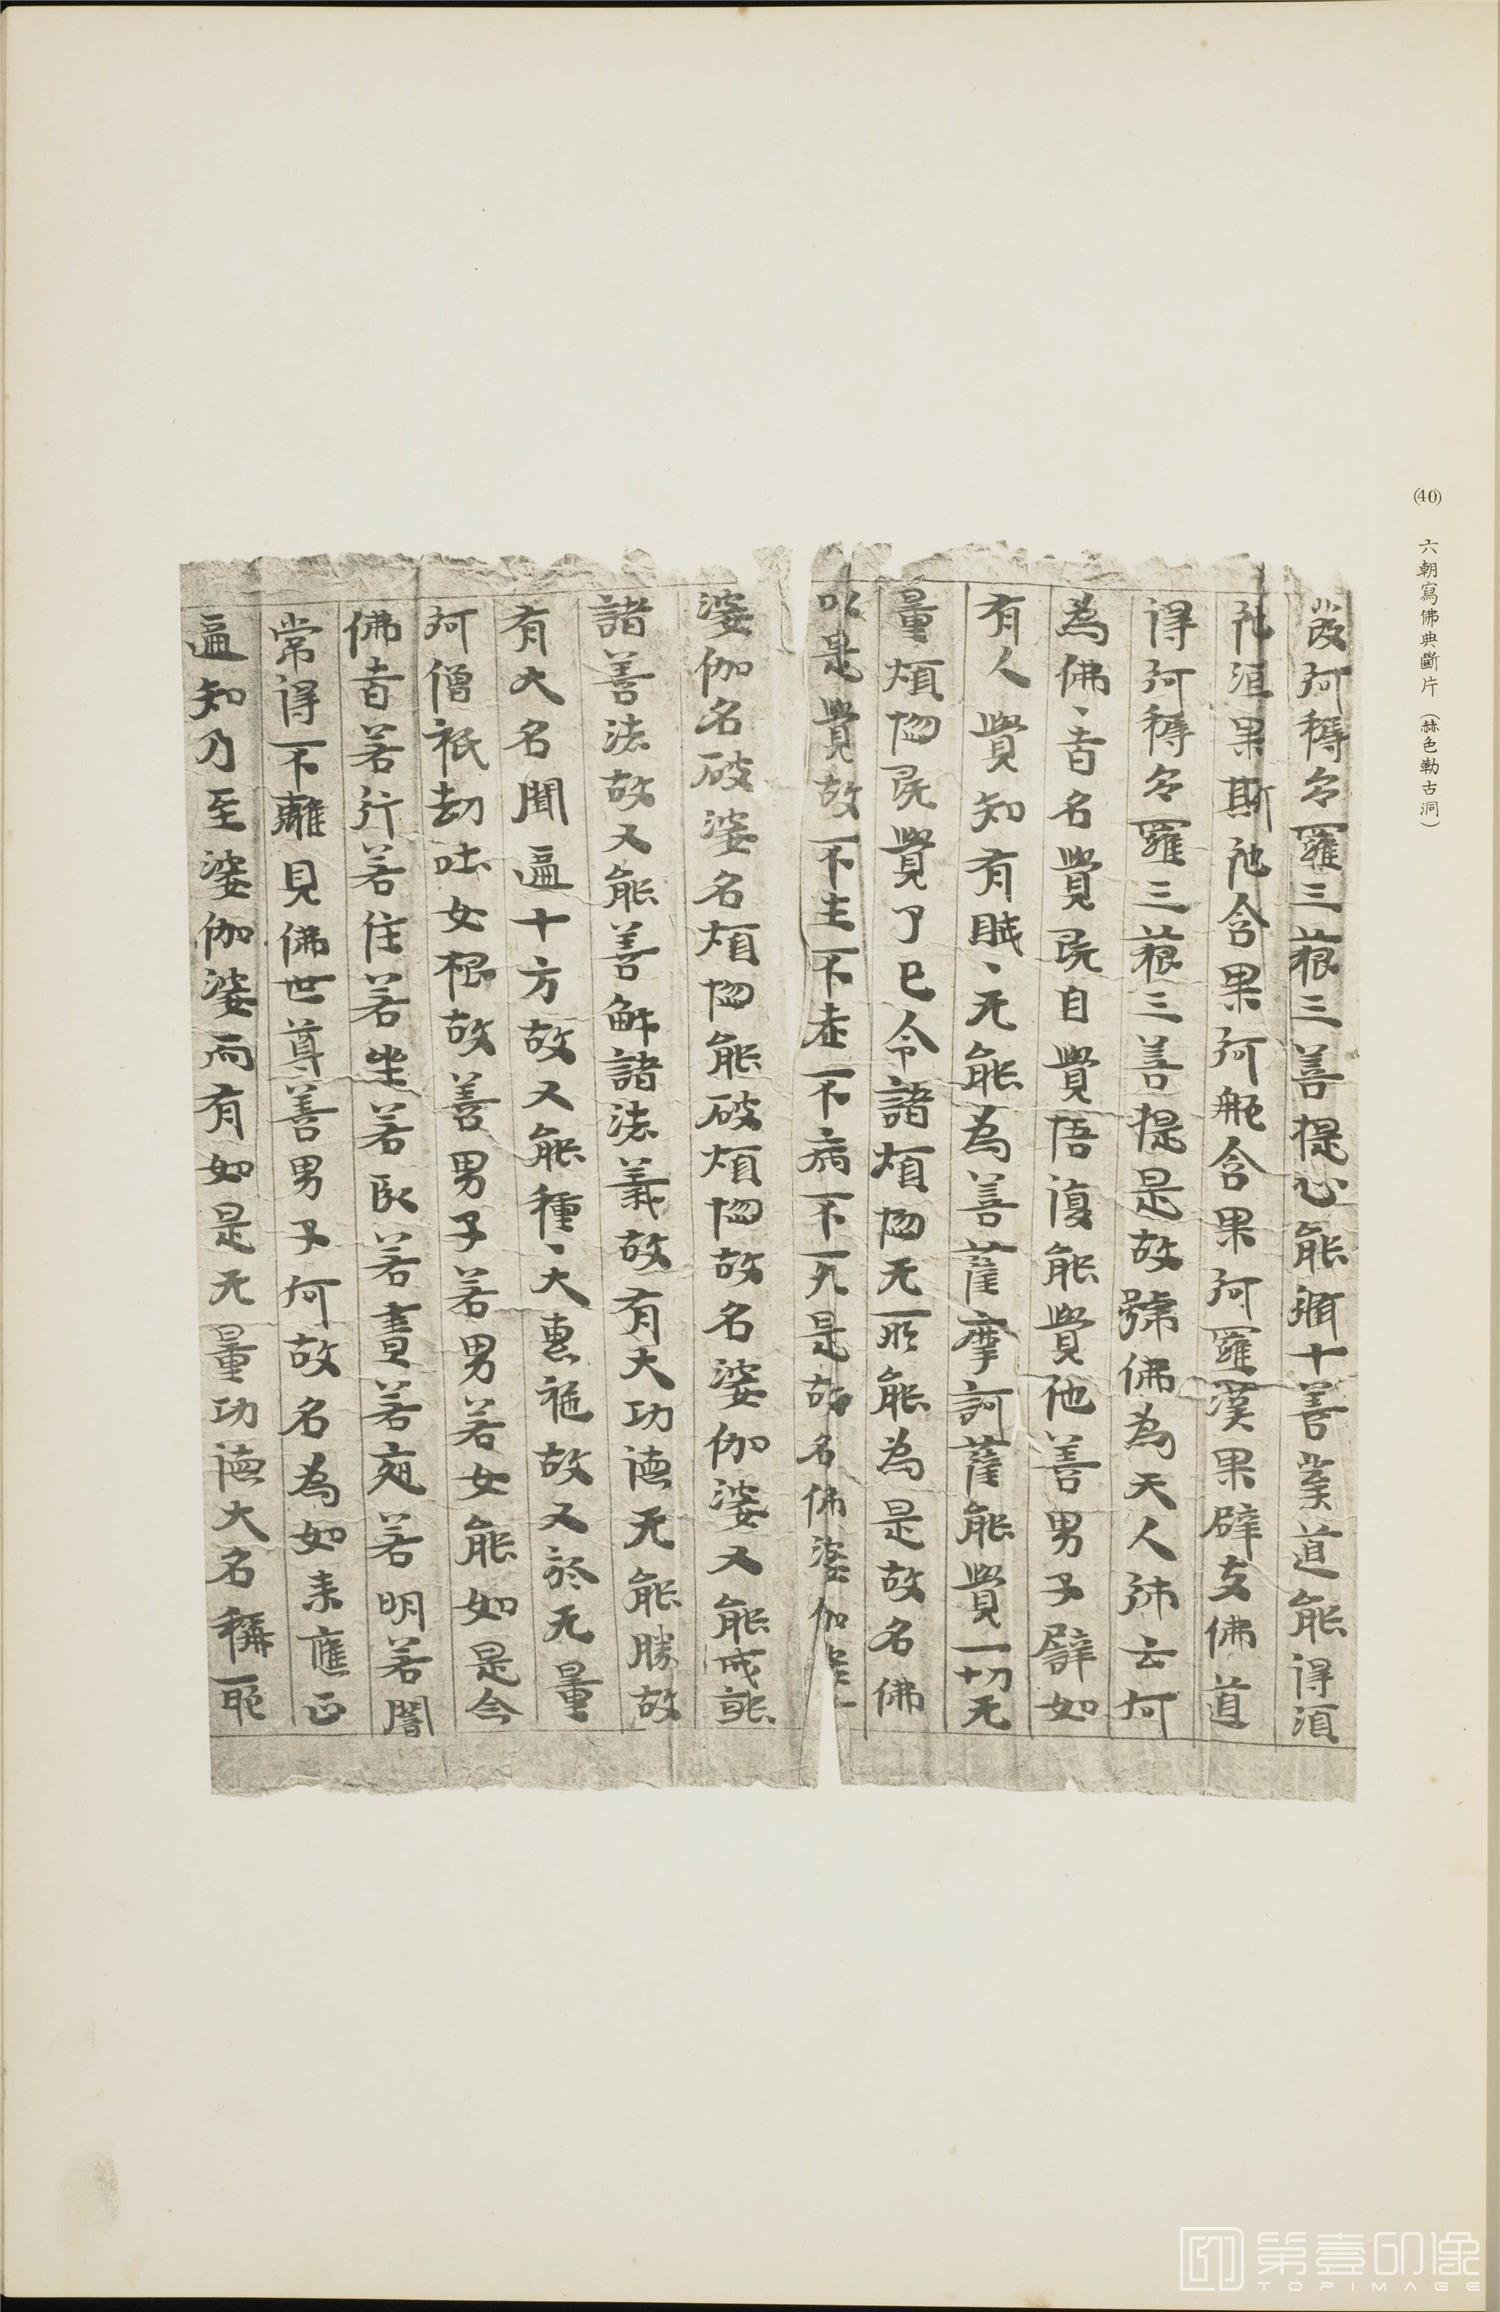 (40) 六朝寫佛典斷片（赫色勒古洞）
發阿耨多羅三藐三菩提心能修十善業道能得須
陀洹果斯陀含果阿那含果阿羅漢果辟支佛道
得阿耨多羅三藐三菩提是故號佛為天人師云何
為佛〻者名覺既自覺悟復能覺他善男子譬如
有人覺知有賊〻无能為菩薩摩訶薩能覺一切无
量煩惱既覺了已令諸煩惱无所能為是故名佛
以是覺故不生不老不病不死是故名佛婆伽婆
婆伽名破婆名煩惱能破煩惱故名婆伽婆又能成就
諸善法故又能善解諸法義故有大功德无能勝故
有大名聞遍十方故又能種〻大惠施故又於无量
阿僧祇劫吐女根故善男子若男若女能如是念
佛者若行若住若坐若臥若晝若夜若明若闇
常得不離見佛世尊善男子何故名為如來應正
遍知乃至婆伽婆而有如是无量功德大名稱耶
第壹印像
TOPIMAGE